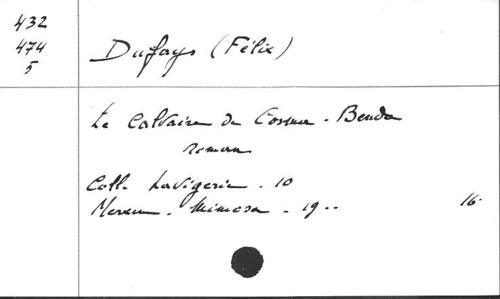 432
474
5
Dufays (Félix)
Le Calvaire de Cosma-Benda
roman
Coll. Lavigerie. 10
Mimosa. 19..
16.